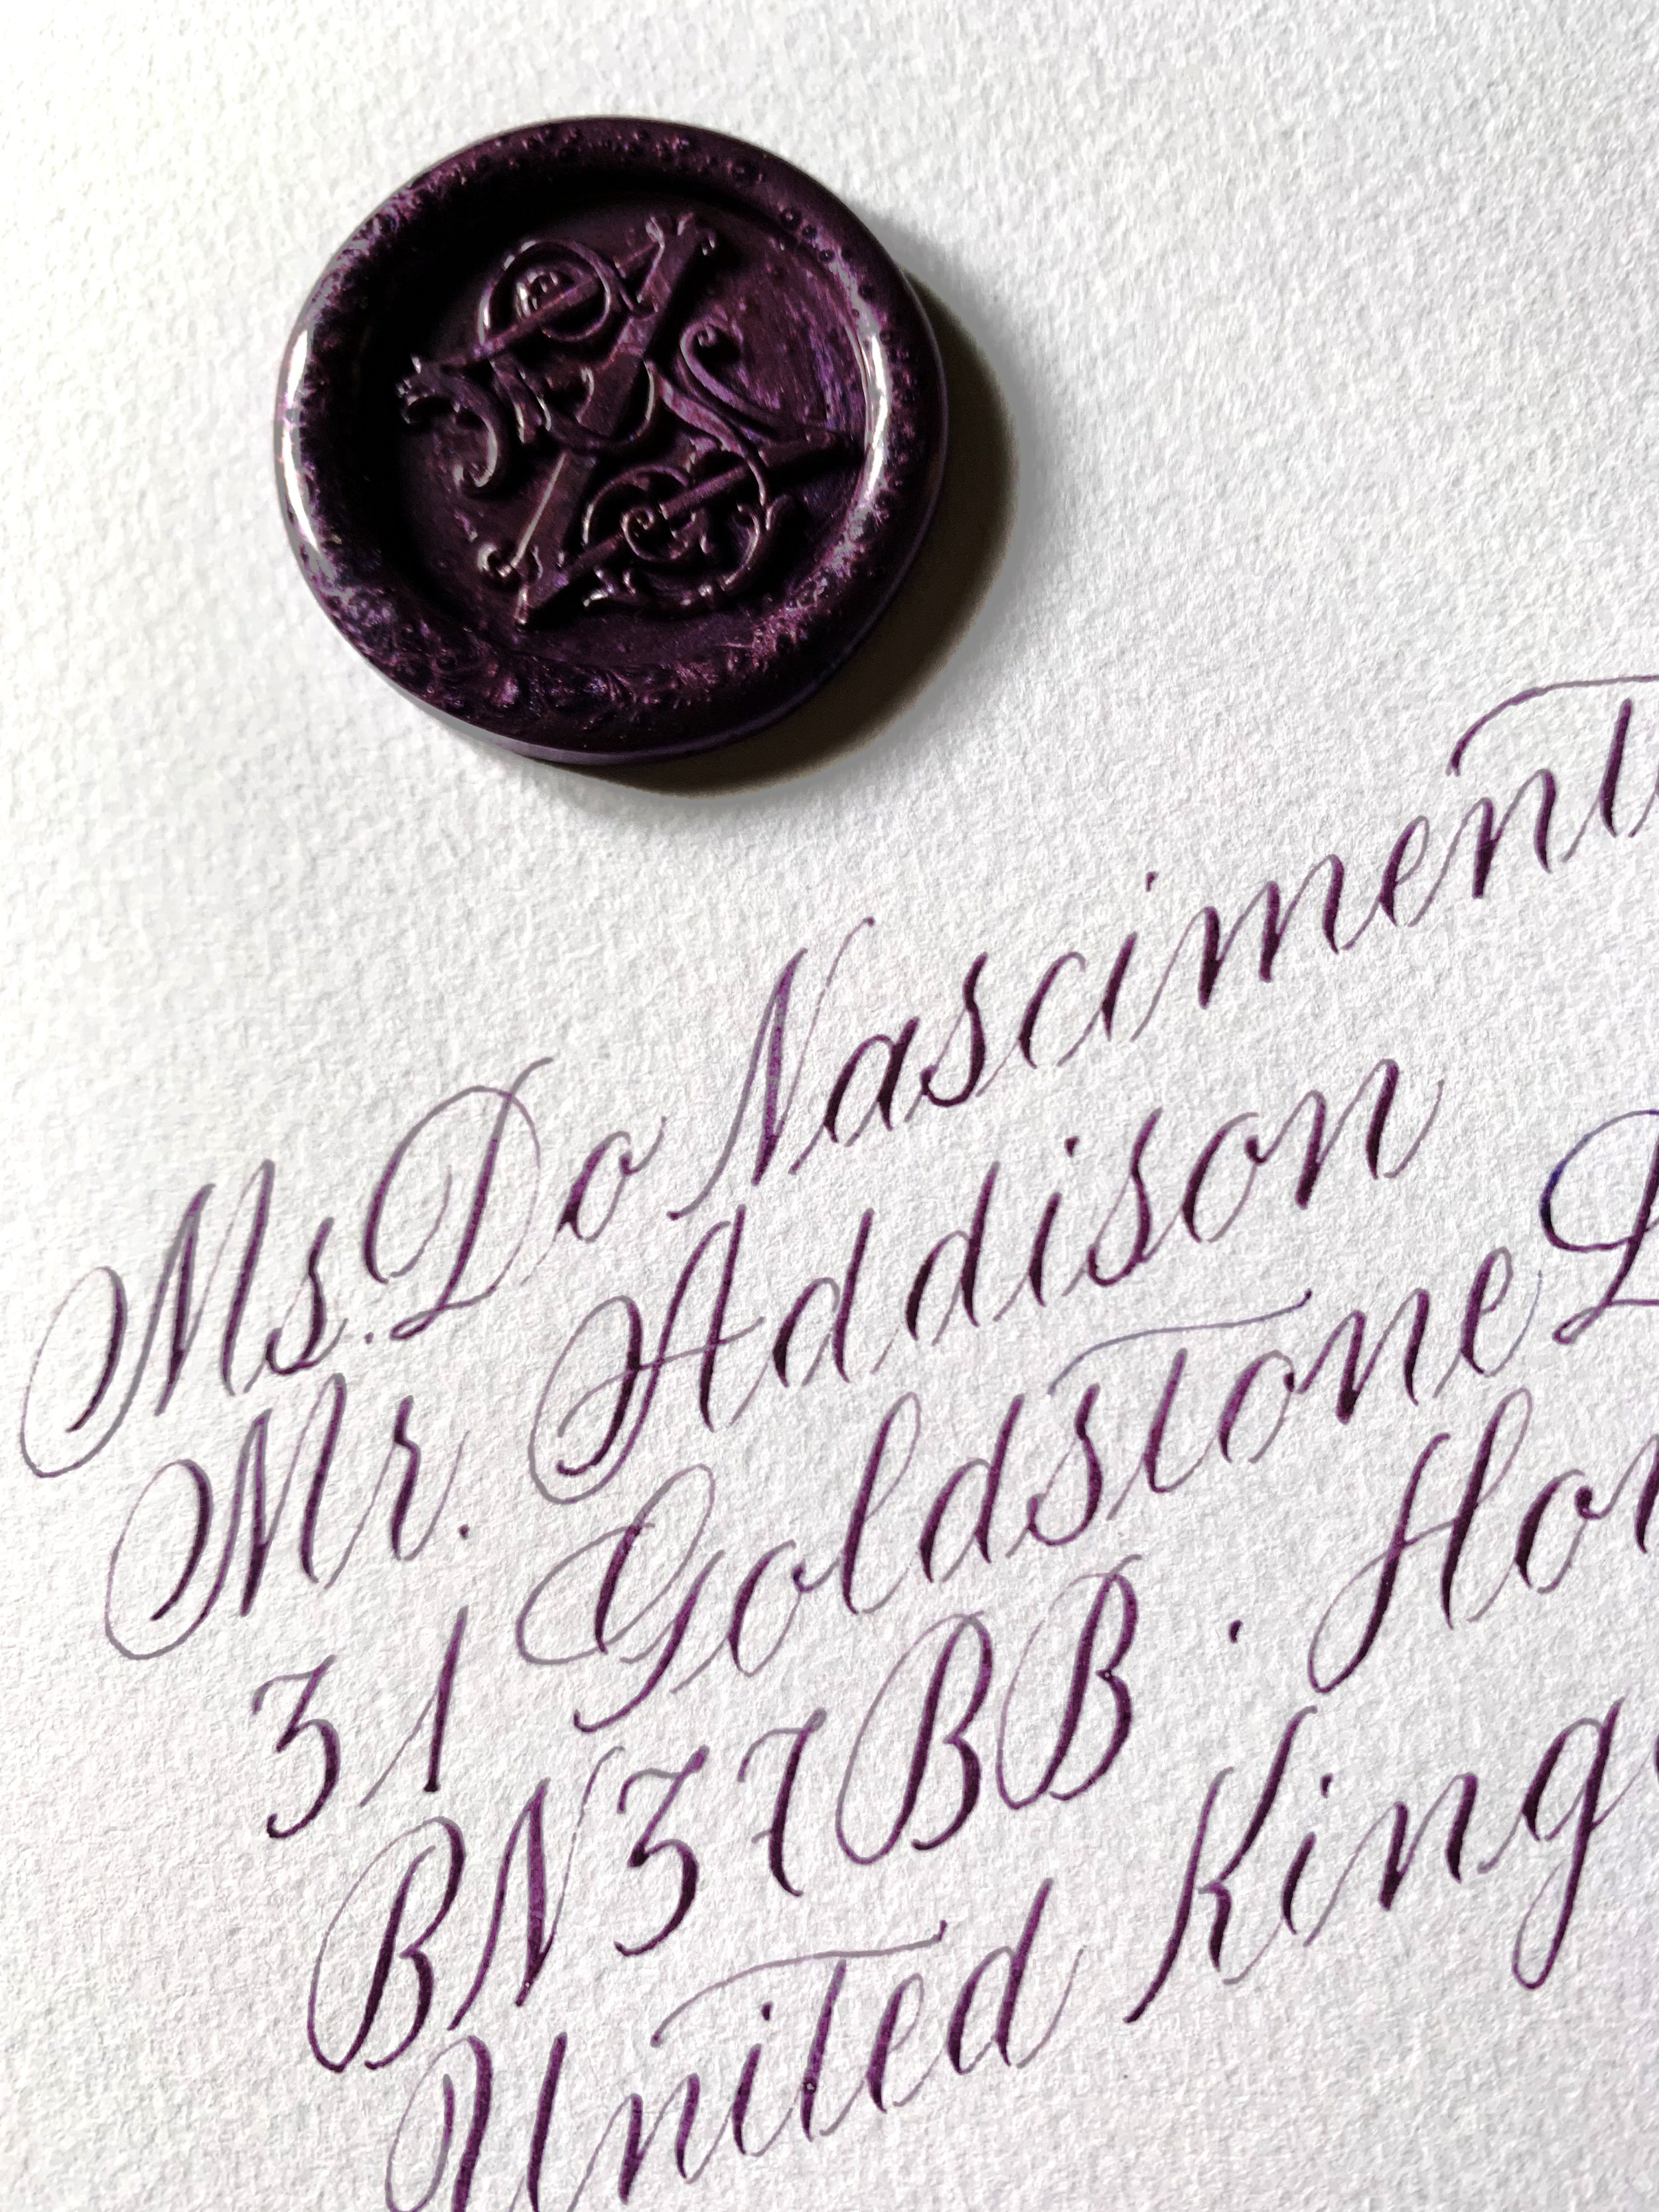 Ms. Do Nasciment
Mr. Addison
31 Goldstone
BN3 7BB · Ho
United King